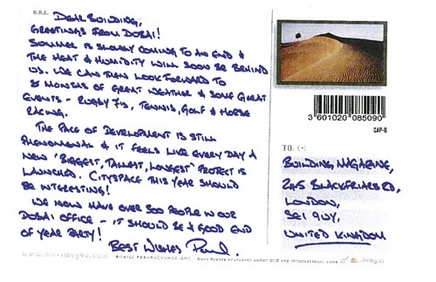 Dear Building,
Greetings from Dubai!
Summer is slowly coming to an end &
the heat & humidity will soon be behind
us. We can then look forward to
8 months of great weather & some great
events - rugby 7's, tennis, golf & horse
racing.
The pace of development is still
phenomenal & it feels like every day a
new 'biggest, tallest, longest' project is
launched. Cityspace this year should
be interesting!
We now have over 300 people in our
Dubai office - it should be a good end
of year party!
Best wishes
3 601020 085090
CAP-6
TO:
Building Magazine,
245 Blackfriars Rd,
London,
SE1 9UY,
United Kingdom